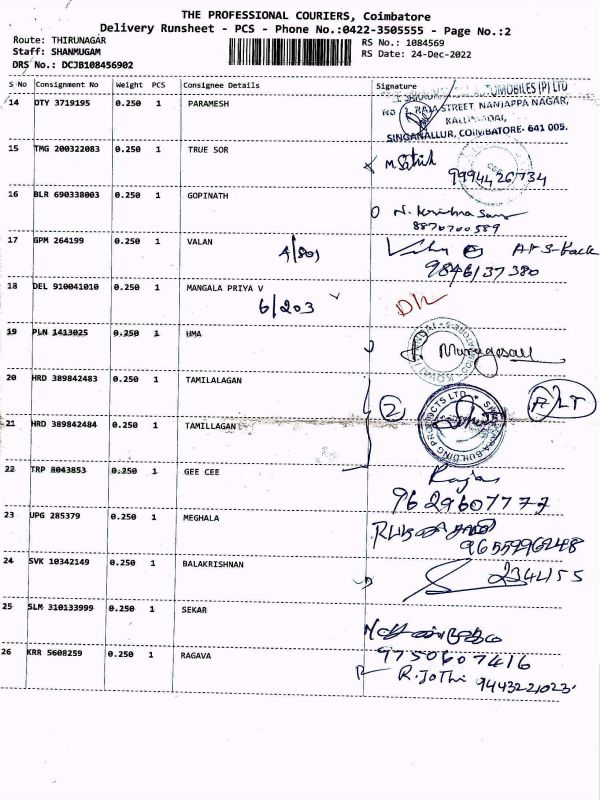 THE PROFESSIONAL COURIERS, Coimbatore
Delivery Runsheet - PCS - Phone No.:0422-3505555 - Page No.:2
Route: THIRUNAGAR
RS No.: 1084569
Staff: SHANMUGAM
RS Date: 24-Dec-2022
DRS No.: DCJB108456902
S No Consignment No Weight PCS Consignee Details Signature
14 DTY 3719195 0.250 1 PARAMESH
AUTOMOBILES (P) LTD
RAJA STREET, NANJAPPA NAGAR,
SINGANALLUR, COIMBATORE- 641 005.
15 TMG 200322083 0.250 1 TRUE SOR
9994426734
16 BLR 690338003 0.250 1 GOPINATH
8870700589
17 GPM 264199 0.250 1 VALAN
A/801
9846137380
18 DEL 910041010 0.250 1 MANGALA PRIYA V
6/203
D/L
19 PLN 1413025 0.250 1 UMA
Murugesan
20 HRD 389842483 0.250 1 TAMILALAGAN
2
21 HRD 389842484 0.250 1 TAMILLAGAN
BUILDING PRODUCTS LTD
22 TRP 8043853 0.250 1 GEE CEE
9629607777
23 UPG 285379 0.250 1 MEGHALA
24 SVK 10342149 0.250 1 BALAKRISHNAN
25 SLM 310133999 0.250 1 SEKAR
9750607416
26 KRR 5608259 0.250 1 RAGAVA
R. JoThi 9443221023